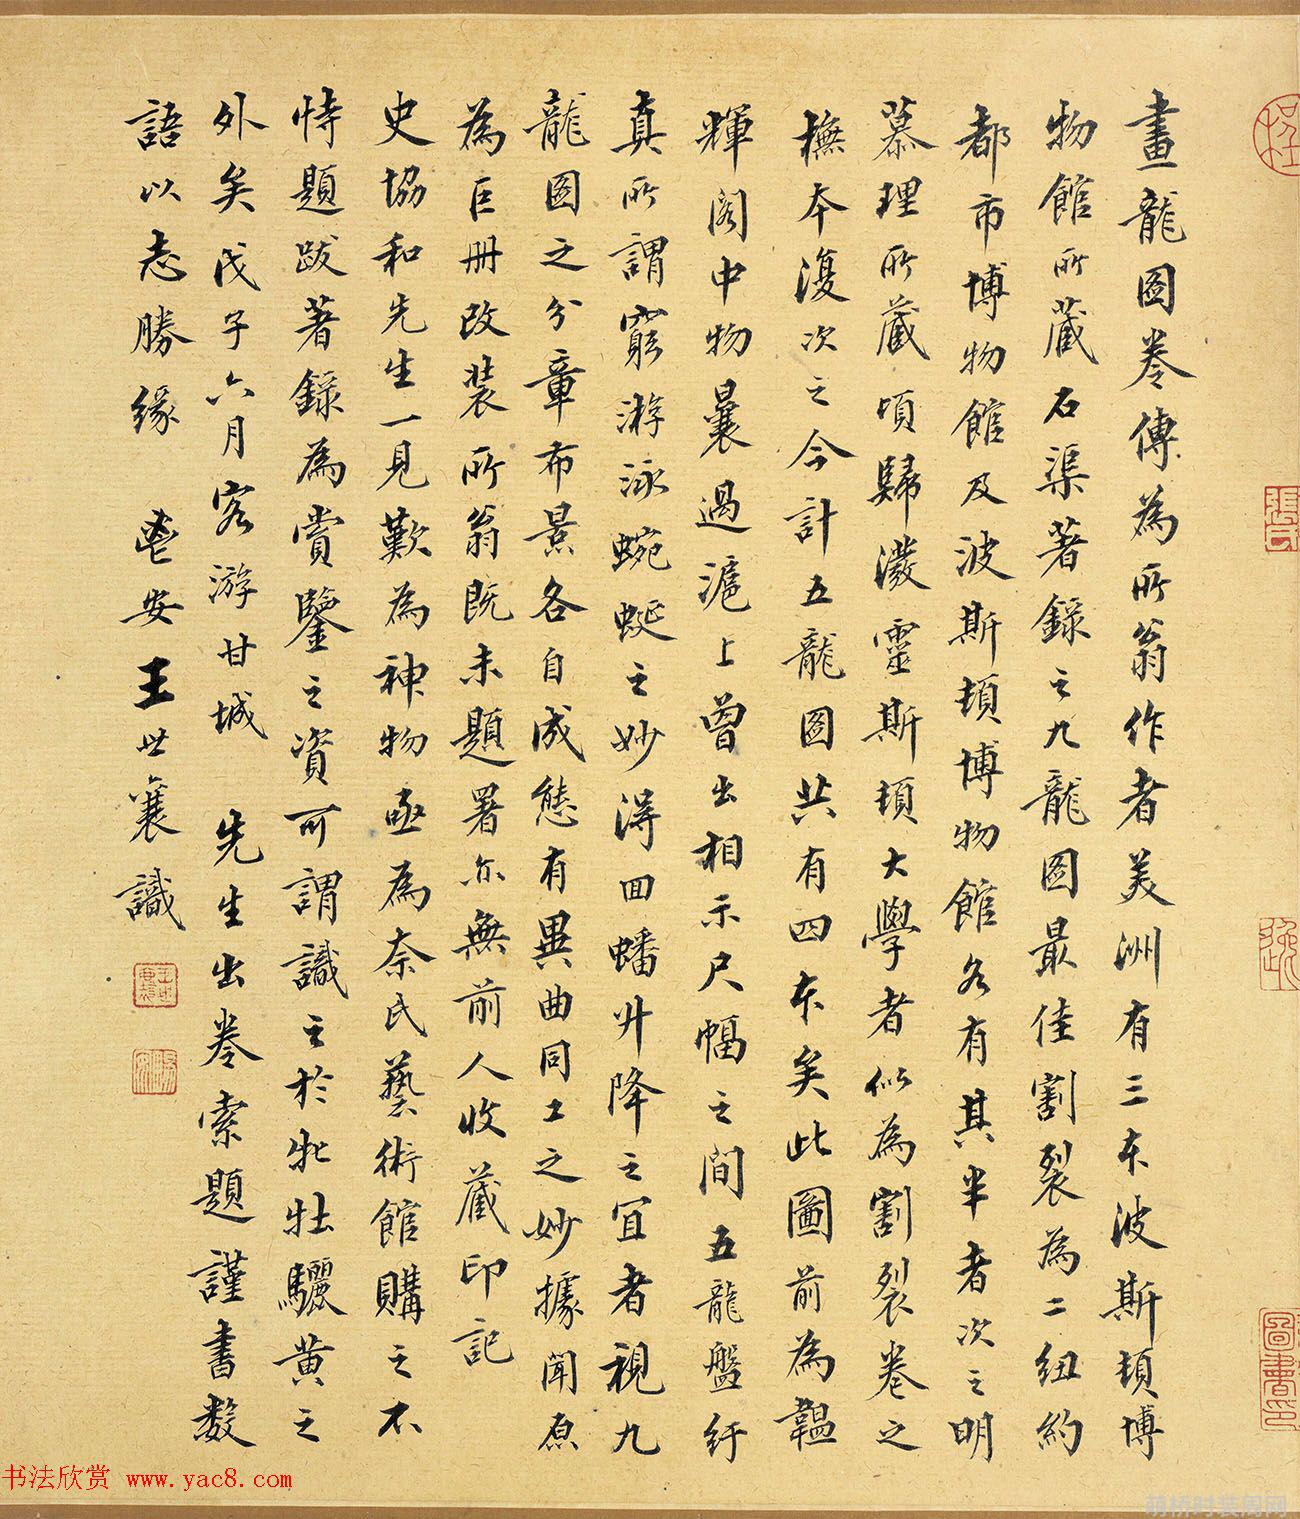 畫龍圖卷傳為所翁作者美洲有三本波斯頓博
物館所藏石渠著錄之九龍圖最佳割裂為二紐約
都市博物館及波斯頓博物館各有其半者次之明
慕理所藏頃歸潑靈斯頓大學者似為割裂卷之
橅本復次之今計五龍圖共有四本矣此圖前為韞
輝閣中物曩過滬上曾出相示尺幅之間五龍盤紆
真所謂窮游泳蜿蜒之妙得回蟠升降之宜者視九
龍圖之分章布景各自成態有異曲同工之妙據聞原
為巨冊改裝所翁既未題署亦無前人收藏印記
史協和先生一見歎為神物亟為奈氏藝術館購之不
特題跋著錄為賞鑒之資可謂識之於牝牡驪黃之
外矣戊子六月客游甘城 先生出卷索題謹書數
語以志勝緣 鬯安王世襄識
書法欣赏 www.yac8.com
萌桥时装周网